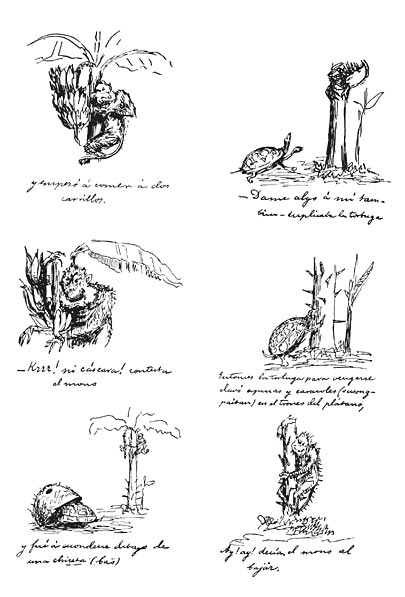 y empezó á comer á dos
carrillos.
—Dame algo á mí tam-
bien—suplicaba la tortuga
—Krrr! ni cáscara! contesta
el mono
Entonces la tortuga para vengarse
llevó agujas y caracoles (suong-
paitan) en el tronco del plátano,
y fué á esconderse debajo de
una chireta (-baö)
Ay! ay! decía el mono al
bajar.